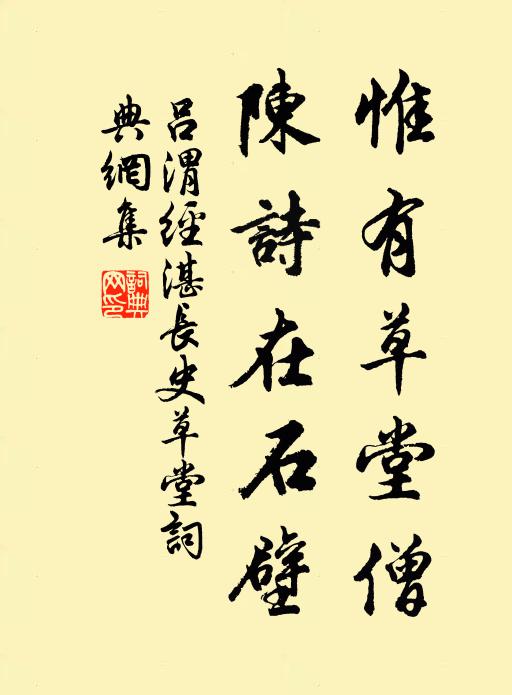 惟有草堂僧
陳詩在石壁
呂渭經湛長史草堂詞
典網集
詞典網印